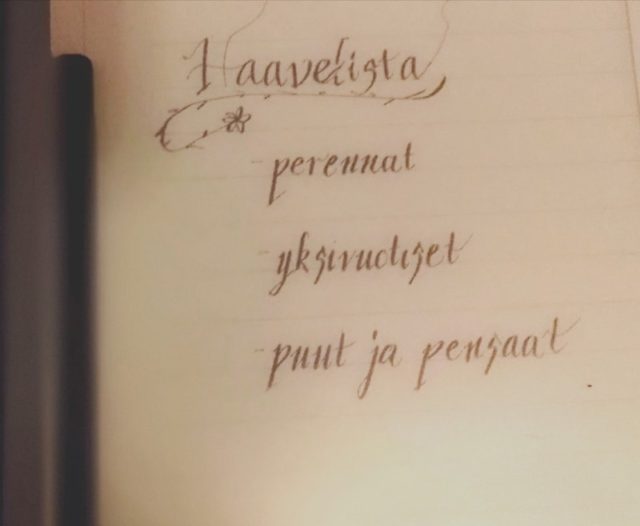 Haavelista
- perennat
- yksivuotiset
- puut ja pensaat